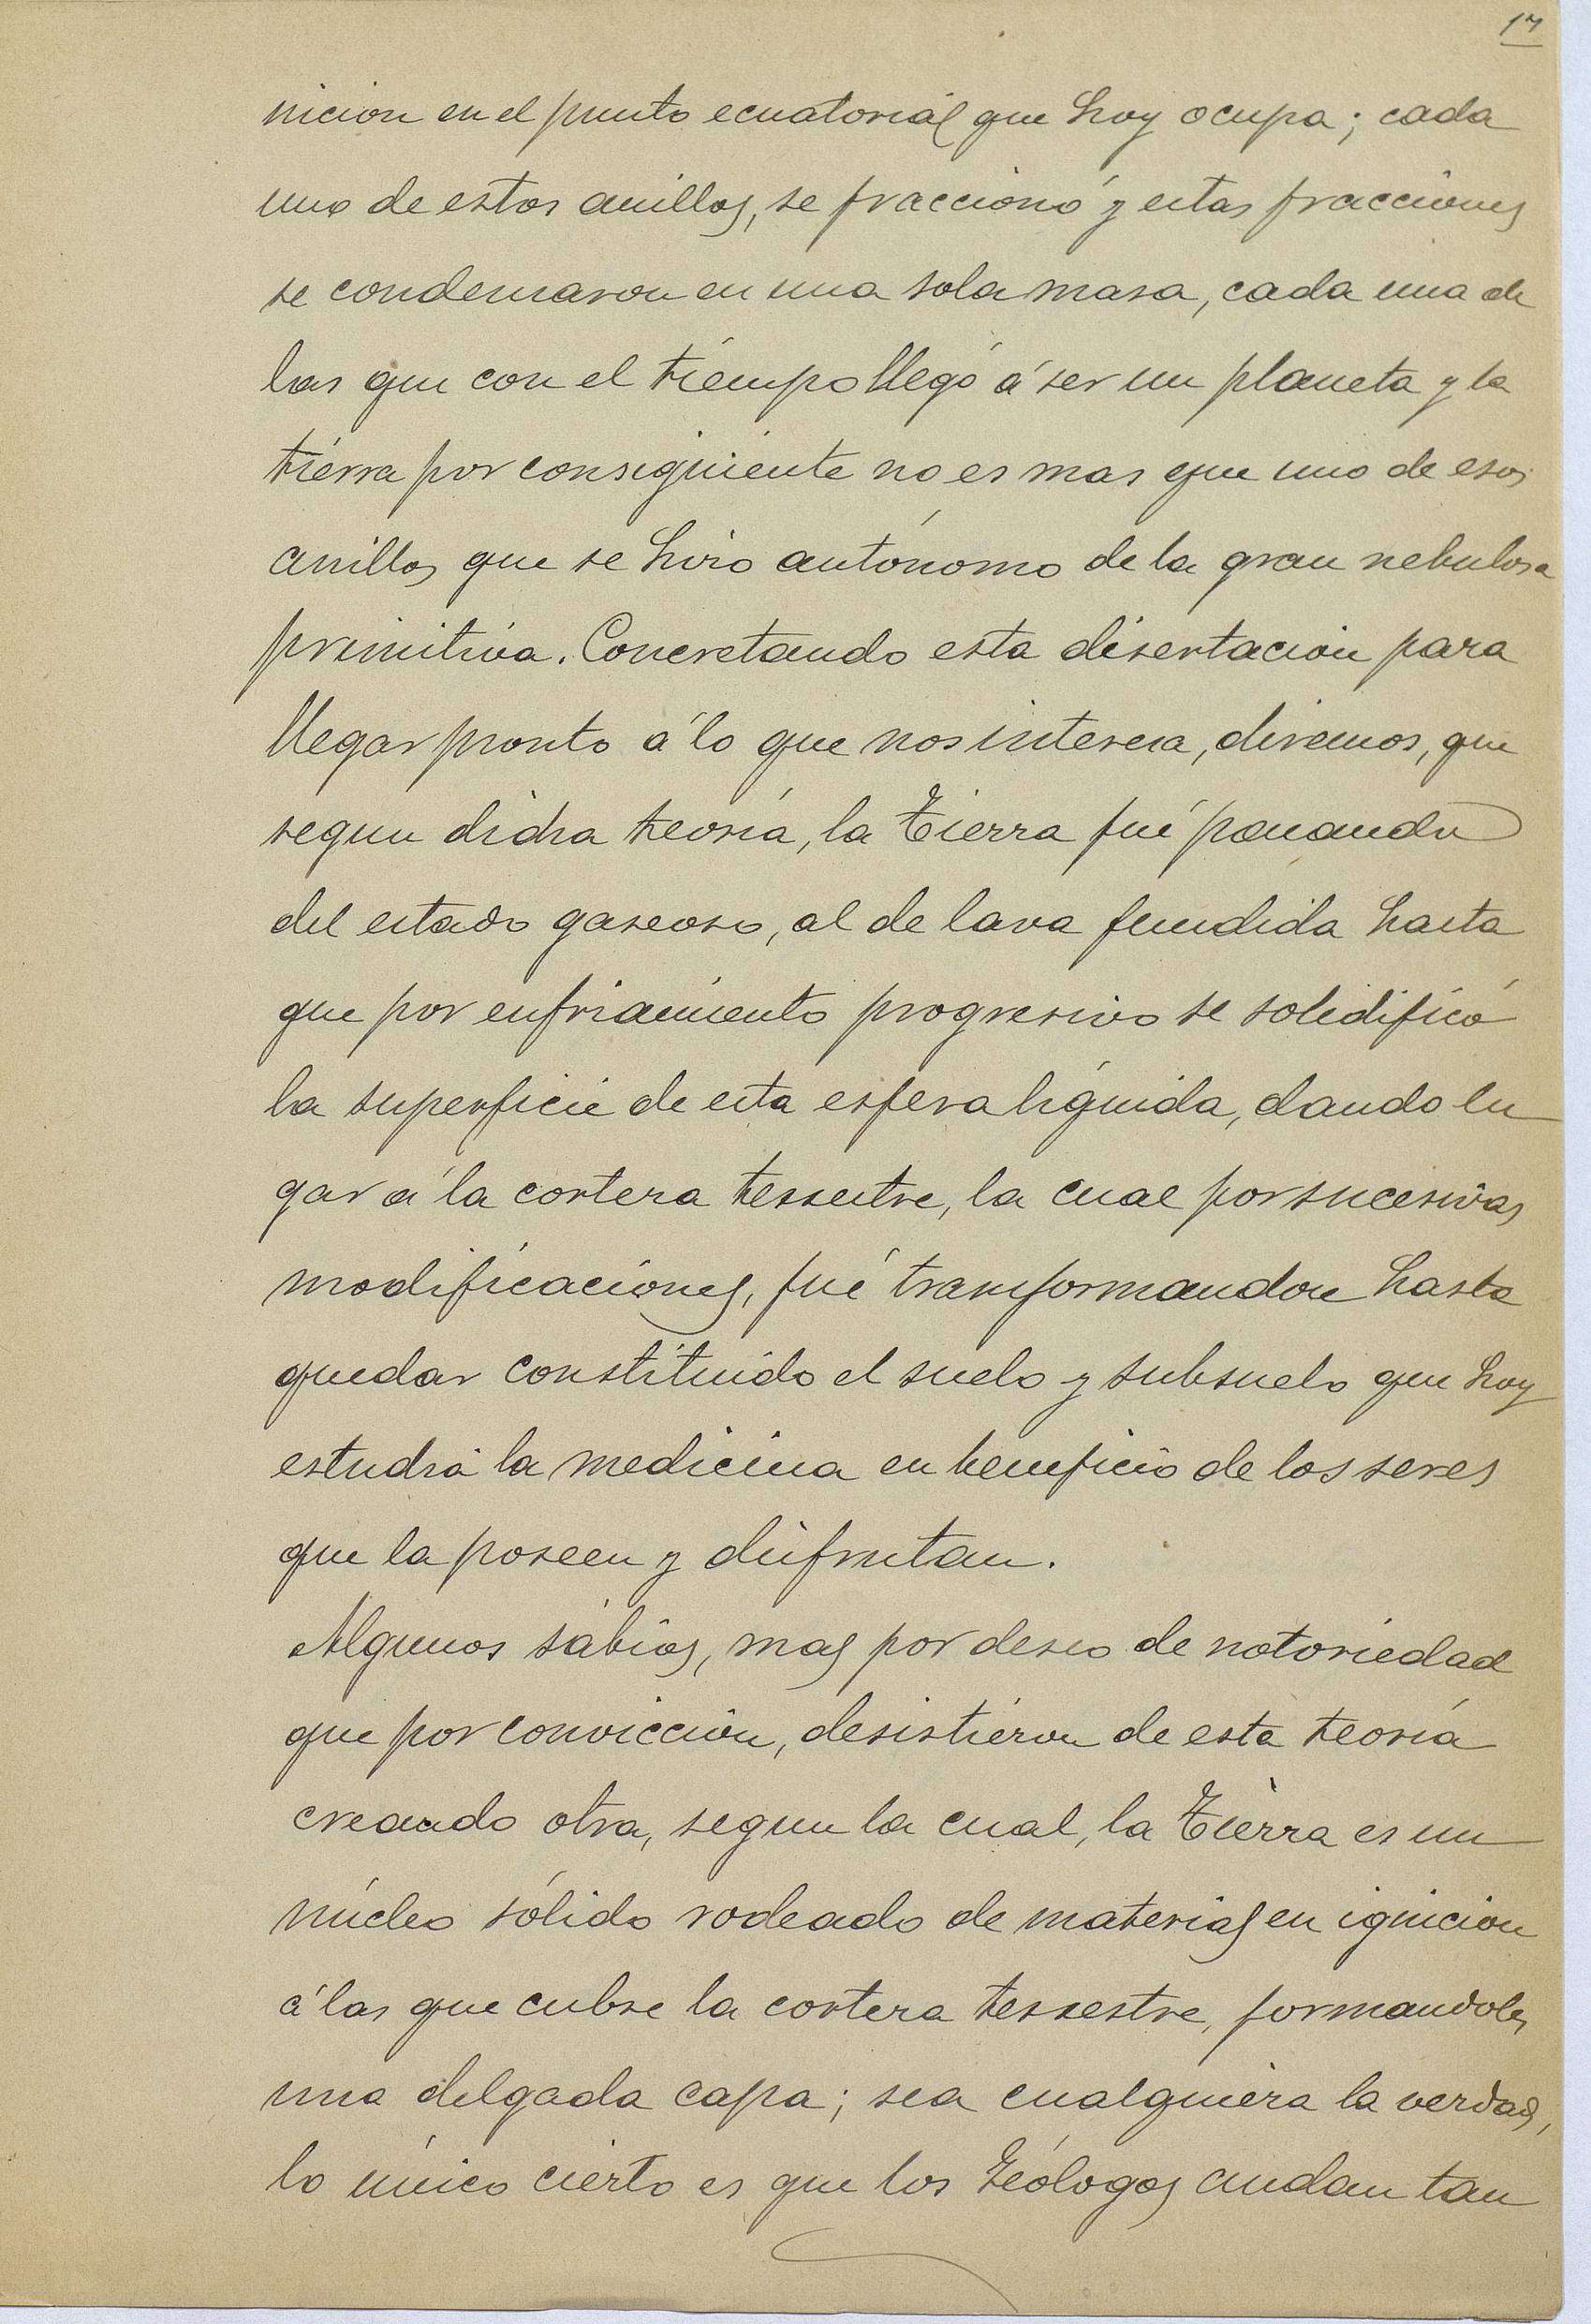 17
nicion en el punto ecuatorial que hoy ocupa; cada
uno de estos anillos, se fraccionó y estas fracciones
se condensaron en una sola masa, cada una de
las que con el tiempo llegó á ser un planeta y la
tierra por consiguiente no es mas que uno de esos
anillos que se hizo autónomo de la gran nebulosa
primitiva. Concretando esta disertacion para
llegar pronto á lo que nos interesa, diremos, que
segun dicha teoría, la Tierra fué pasando
del estado gaseoso, al de lava fundida hasta
que por enfriamiento progresivo se solidificó
la superficie de esta esfera líquida, dando lu
gar á la corteza terrestre, la cual por sucesivas
modificaciones, fué transformandose hasta
quedar constituido el suelo y subsuelo que hoy
estudia la medicina en beneficio de los seres
que la poseen y disfrutan.
Algunos sábios, mas por deseo de notoriedad
que por conviccion, desistieron de esta teoría
creando otra, segun la cual, la Tierra es un
núcleo sólido rodeado de materias en ignicion
á las que cubre la corteza terrestre, formandoles
una delgada capa; sea cualquiera la verdad,
lo único cierto es que los Geólogos andan tan